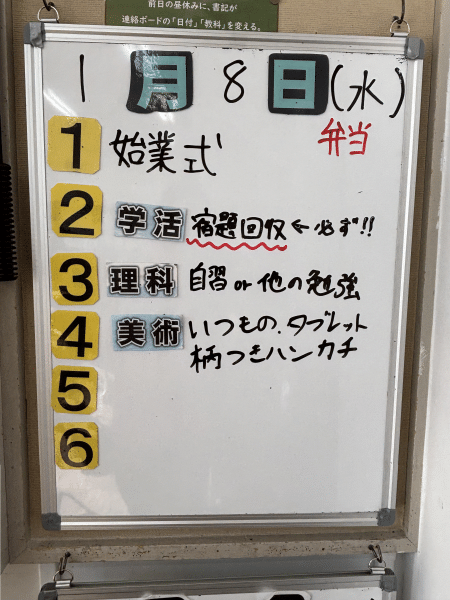 前日の昼休みに、書記が
連絡ボードの「日付」「教科」を変える。
1月8日(水)
弁当
1 始業式
2 学活 宿題回収←必ず!!
3 理科 自習or他の勉強
4 美術 いつもの、タブレット
柄つきハンカチ
5
6